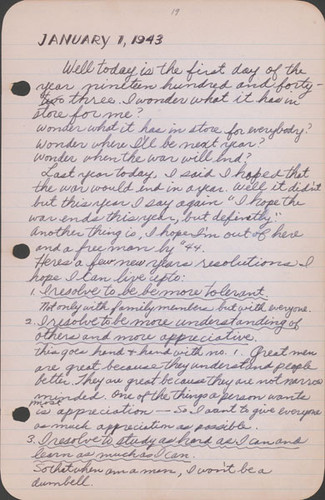 19
JANUARY 1, 1943
Well today is the first day of the
year nineteen hundred and forty-
two three. I wonder what it has in
store for me?
Wonder what it has in store for everybody?
Wonder where I'll be next year?
Wonder when the war will end?
Last year today, I said I hoped that
the war would end in a year. Well it didn't
but this year I say again "I hope the
war ends this year, but definitly"
Another thing is, I hope I'm out of here
and a free man by '44.
Heres a few new years resolutions I
hope I can live upto:
1. I resolve to be be more tolerant.
Not only with family members but with everyone.
2. I resolve to be more understanding of
others and more appreciative.
this goes hand & hand with no. 1. Great men
are great because they understand people
better. they are great because they are not narrow
minded. One of the things a person wants
most is appreciation — So I want to give everyone
as much appreciation as possible.
3. I resolve to study as hard as I can and
learn as much as I can.
So that when am a man, I won't be a
dumbell.